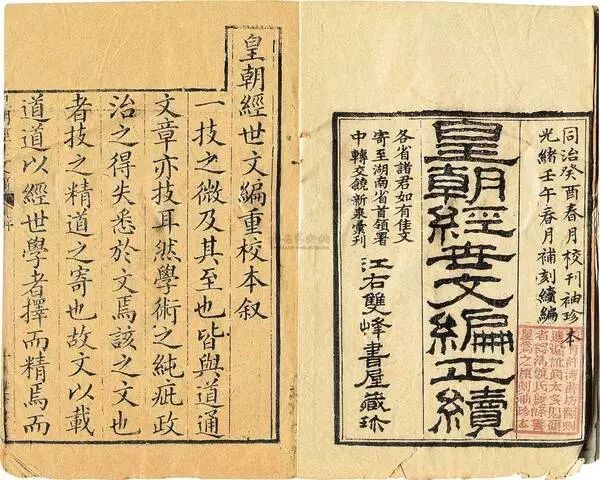 同治癸酉春月校刊袖珍本
光緒壬午春月補刻續編
皇朝經世文編正續
各省諸君如有佳文
寄至湖南省首領署
中轉交饒新泉彙刊
江右雙峰書屋藏珎
皇朝經世文編重校本叙
一技之微及其至也皆與道通
文章亦技耳然學術之純疵政
治之得失悉於文焉該之文也
者技之精道之寄也故文以載
道道以經世學者擇而精焉而